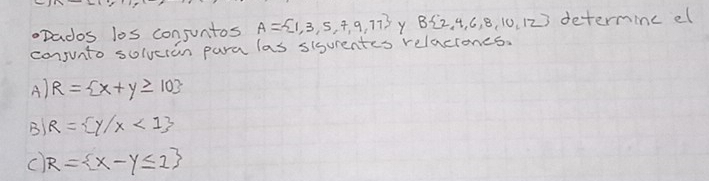 •Dados los conjuntos A={1,3,5,7,9,11} y B{2,4,6,8,10,12} determine el
conjunto solución para las sigurentes relaciones.
A) R = {x+y ≥ 10}
B) R = {y/x < 1}
C) R = {x-y ≤ 2}